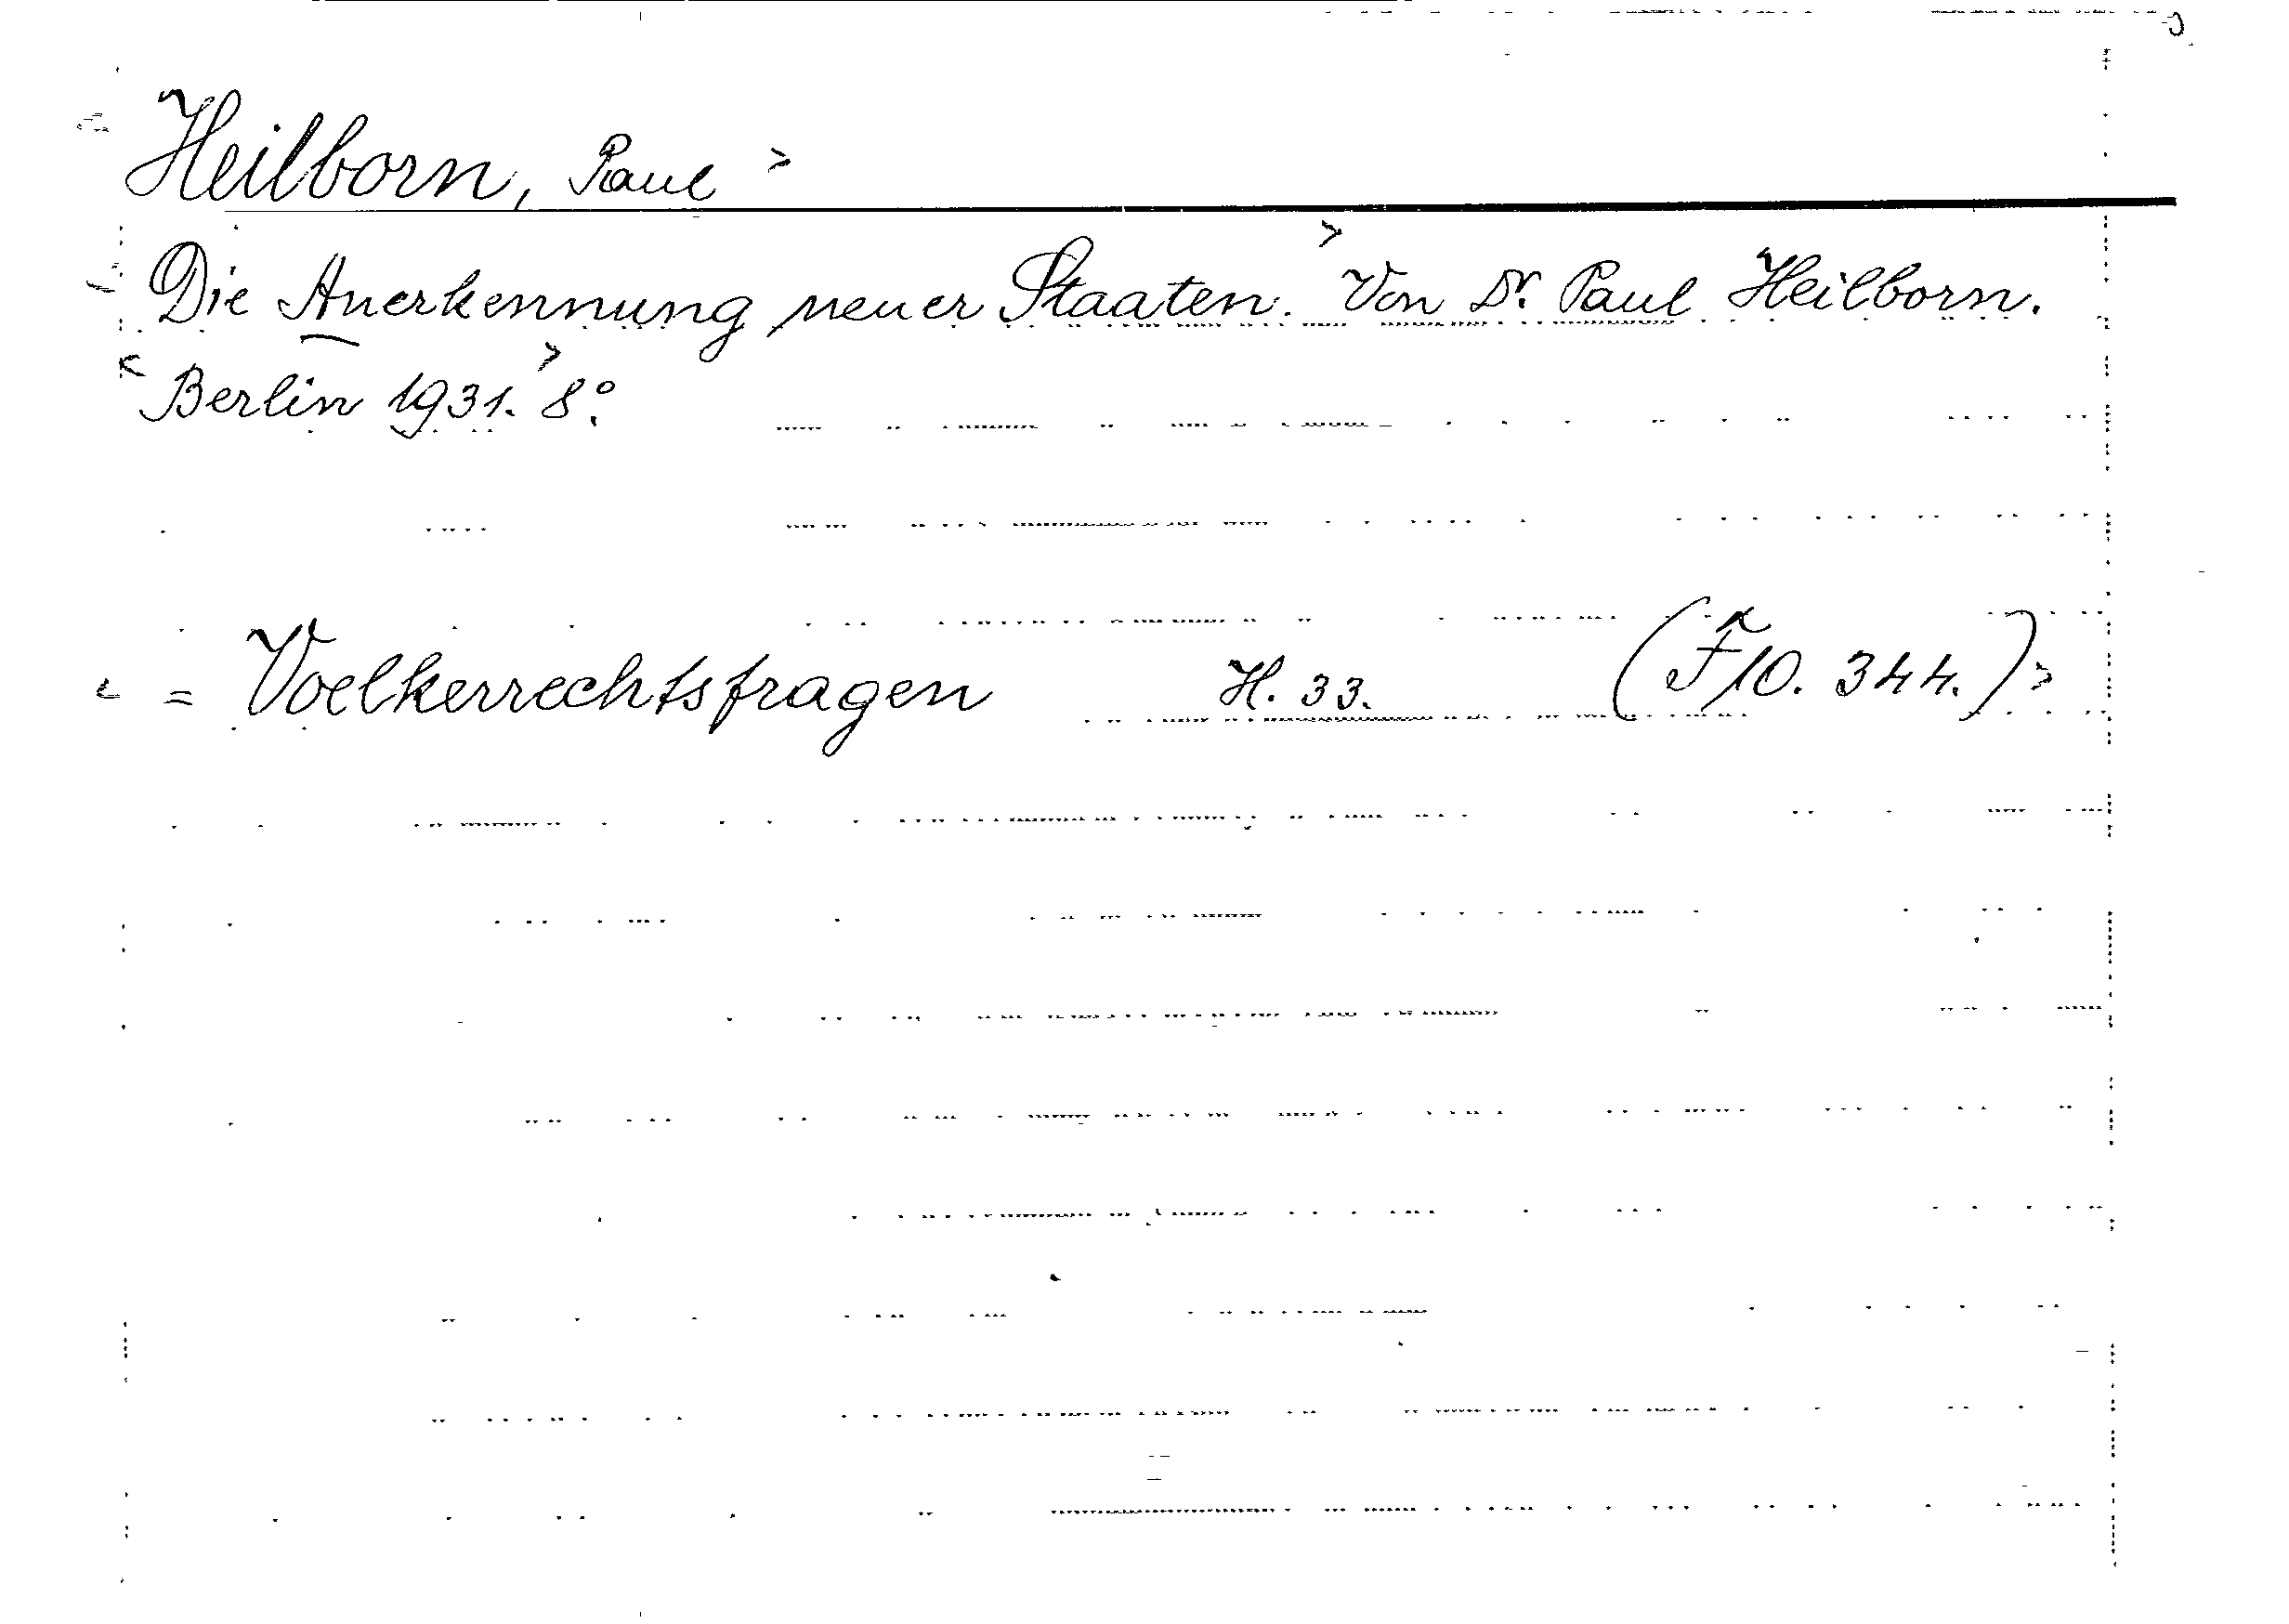 Heilborn, Paul >
Die Anerkennung neuer Staaten. > Von Dr. Paul Heilborn.
< Berlin 1931. > 8°.
< = Voelkerrechtsfragen H. 33. (F 10. 344.) >